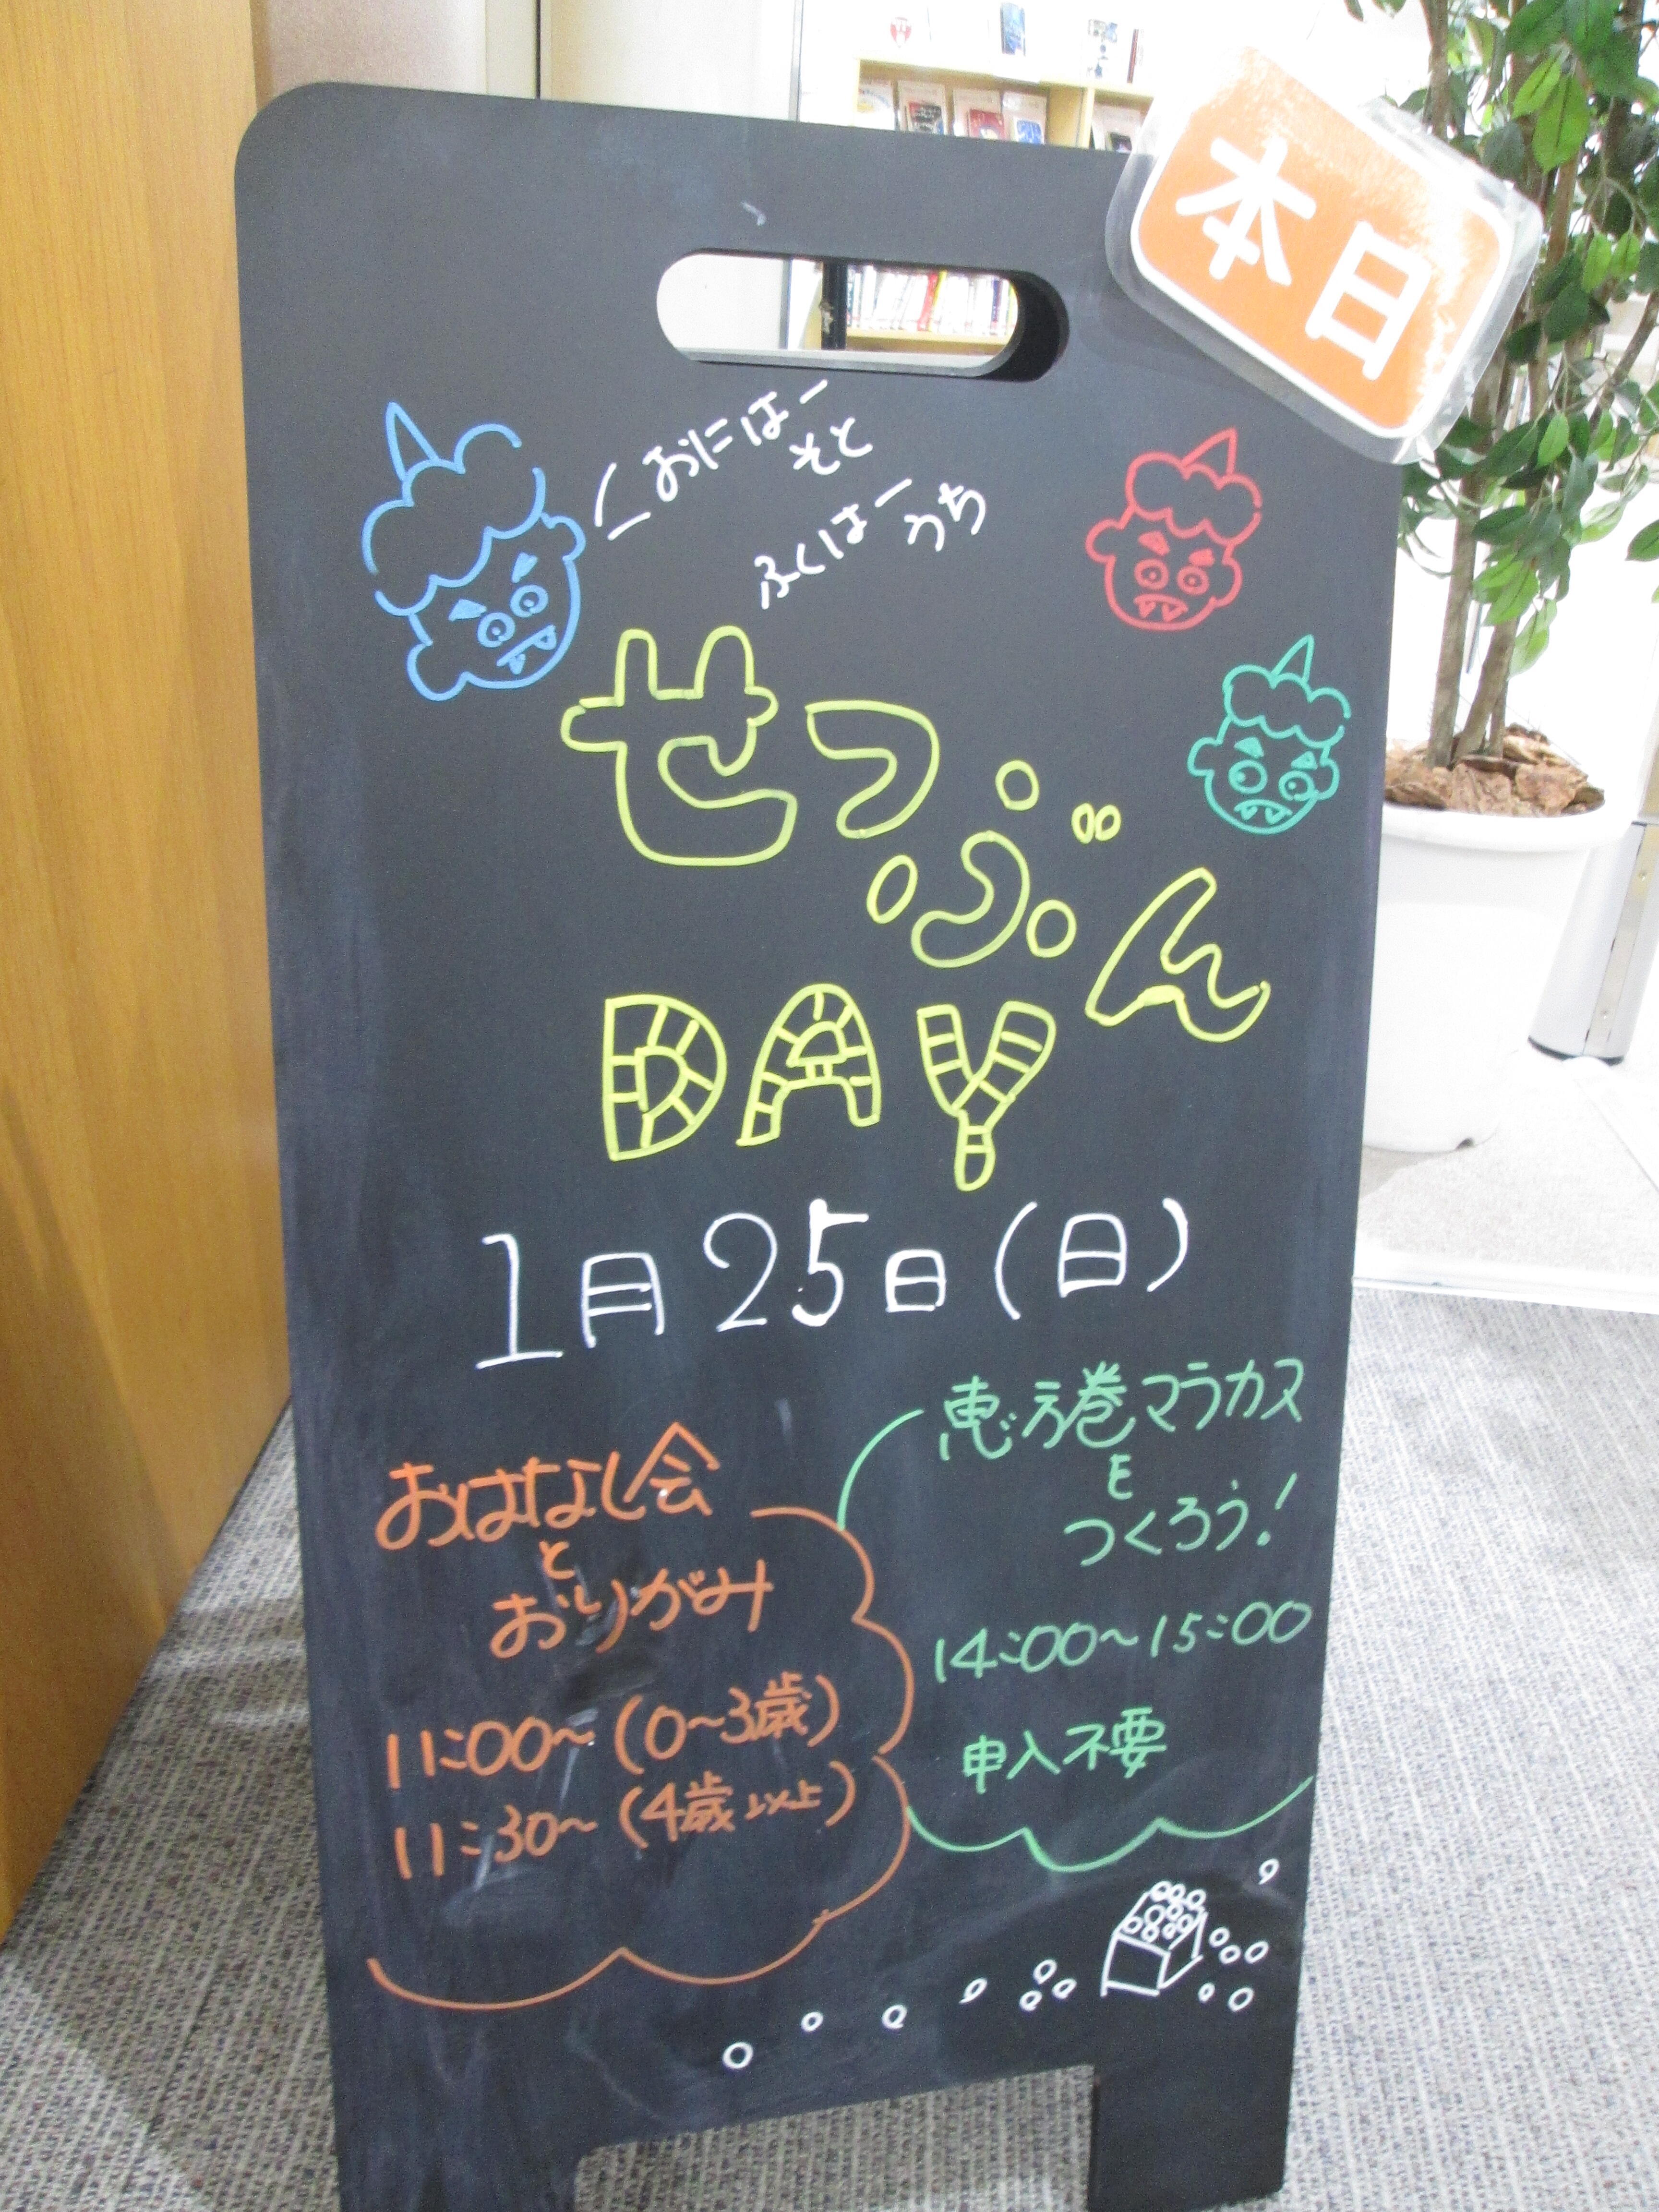 本日
おにはー
そと
ふくはー
うち
せつぶん
DAY
1月25日(日)
おはなし会
と
おりがみ
11:00〜(0〜3歳)
11:30〜(4歳以上)
恵方巻マラカス
を
つくろう!
14:00〜15:00
申込不要